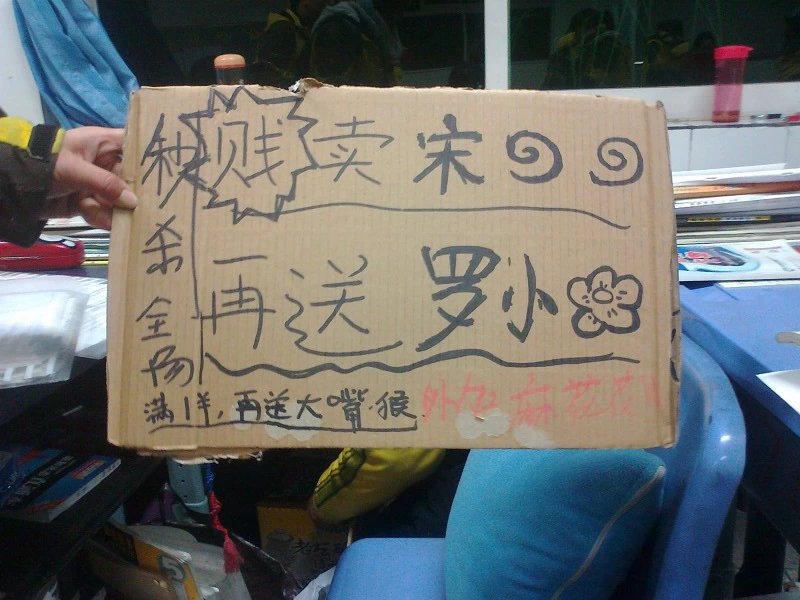 秒杀全场
贱卖宋
再送罗小
满1羊,再送大嘴猴
外加麻花